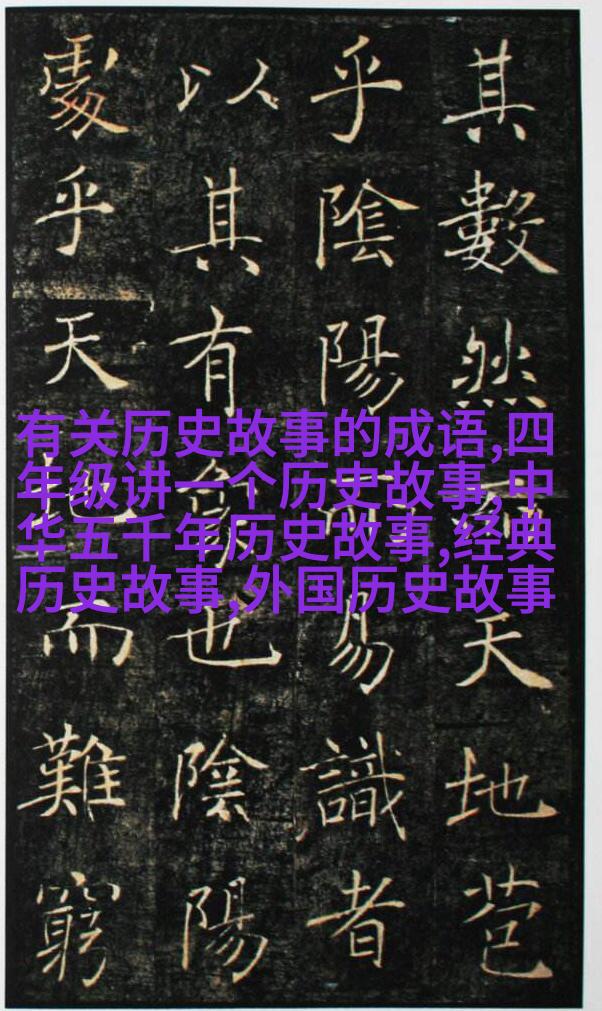 其數然而天地苞
乎陰陽而易識者
以其有象也陰陽
處乎天地而難窮
有关历史故事的成语,四
年级讲一个历史故事,中
华五千年历史故事,经典
历史故事,外国历史故事